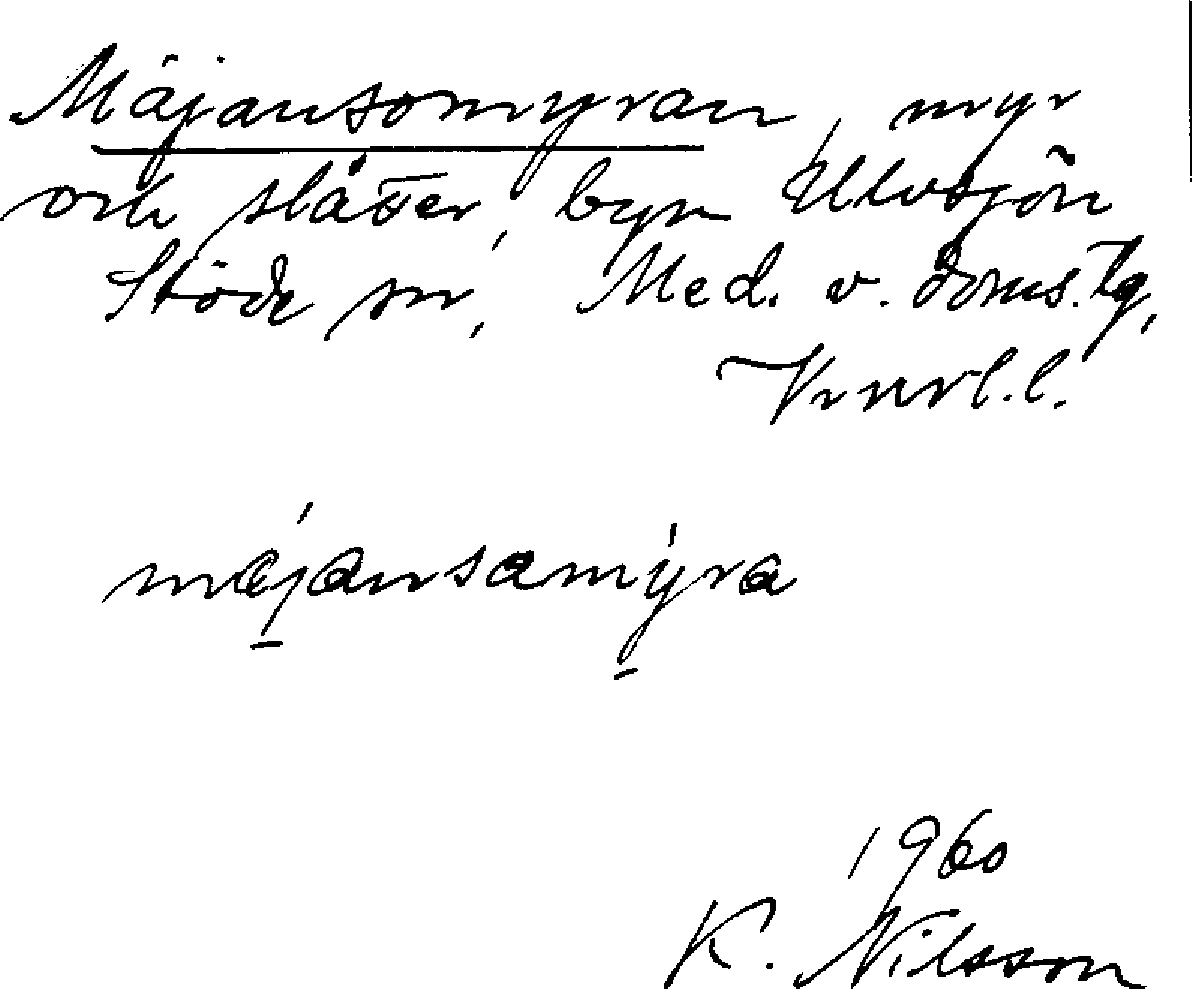 Mäjansomyran, myr
och slåtter, byn Ulvsjön
Stöde sn, Med. v. doms. tg,
Vnrl. l.
májansamýra
1960
K. Nilsson